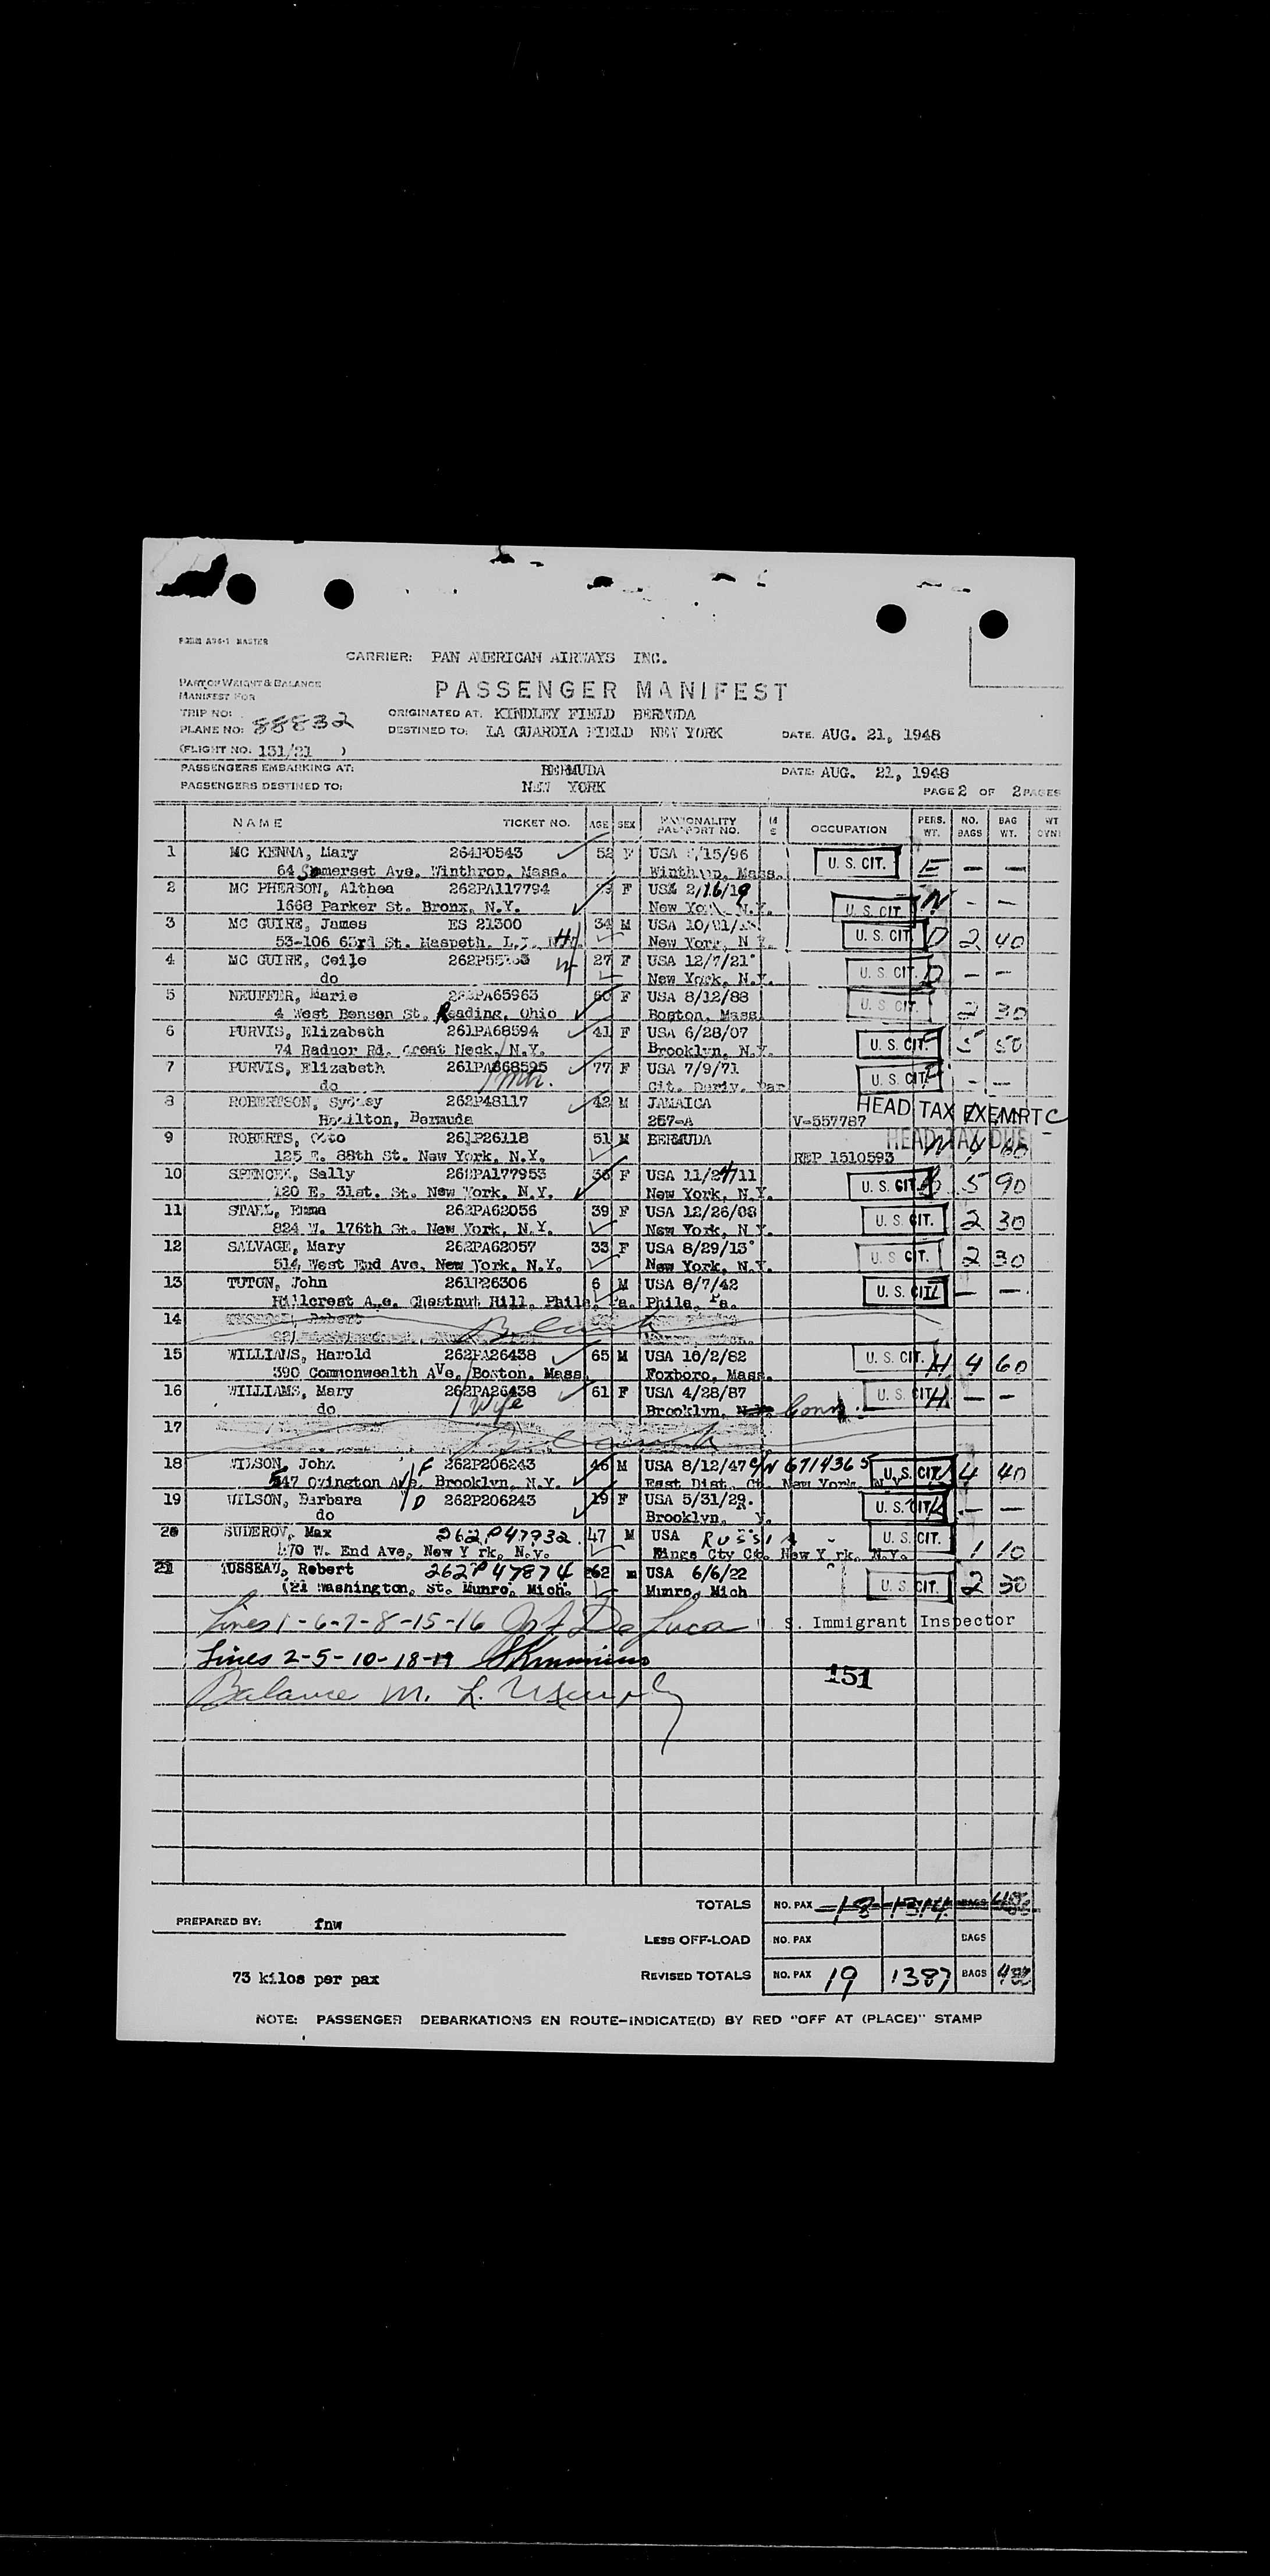 FORM MASTER
CARRIER: PAN AMERICAN AIRWAYS INC.
PART OF WEIGHT & BALANCE
MANIFEST FOR
PASSENGER MANIFEST
TRIP NO:
ORIGINATED AT: KINDLEY FIELD BERMUDA
PLANE NO: 88832
DESTINED TO: LA GUARDIA FIELD NEW YORK DATE: AUG. 21, 1948
(FLIGHT NO. 151/21 )
PASSENGERS EMBARKING AT: BERMUDA DATE: AUG. 21, 1948
PASSENGERS DESTINED TO: NEW YORK PAGE 2 OF 2 PAGES
NAME TICKET NO. AGE SEX NATIONALITY PASSPORT NO. OCCUPATION PERS. WT. NO. BAGS BAG WT.
1 MC KENNA, Mary 52 F USA /15/96 U. S. CIT. E — —
64 Somerset Ave. Winthrop, Mass. Winthrop, Mass.
2 MC PHERSON, Althea 262PA117794 F USA 2/16/19 N - -
1668 Parker St. Bronx, N.Y. New York, N.Y. U. S. CIT
3 MC GUIRE, James ES 21300 34 M USA U. S. CIT D 2 40
53-106 63rd St. Maspeth, L.I. New York, N.Y.
4 MC GUIRE, Ceile 27 F USA 12/7/21 U. S. CIT. D — —
do New York, N.Y.
5 NEUFFER, Marie 60 F USA 8/12/88 U. S. CIT. 2 30
4 West Bensen St. Reading, Ohio Boston, Mass
6 PURVIS, Elizabeth 261PA68594 41 F USA 6/28/07 U. S. CIT. 5 50
74 Radnor Rd. Great Neck, N.Y. Brooklyn, N.Y.
7 PURVIS, Elizabeth 77 F USA 7/9/71 U. S. CIT — —
do Cit. Deriv. Par.
8 ROBERTSON, Sydney 262P48117 42 M JAMAICA HEAD TAX EXEMPT C
Hamilton, Bermuda 257-A V-557787
9 ROBERTS, Otto 261P26118 51 M BERMUDA HEAD TAX DUE
125 E. 88th St. New York, N.Y. REP 1510593
10 SPENCER, Sally 262PA177953 36 F USA 11/24/11 U. S. CIT. 5 90
120 E. 31st. St. New York, N.Y. New York, N.Y.
11 STAEL, Emma 262PA62056 39 F USA 12/26/08 U. S. CIT. 2 30
824 W. 176th St. New York, N.Y. New York, N.Y.
12 SALVAGE, Mary 262PA62057 33 F USA 8/29/13 U. S. CIT. 2 30
514 West End Ave. New York, N.Y. New York, N.Y.
13 TUTON, John 261P26306 6 M USA 8/7/42 U. S. CIT. — —
Hillcrest Ave. Chestnut Hill, Phila, Pa. Phila, Pa.
14 Blank
15 WILLIAMS, Harold 262PA26438 65 M USA 10/2/82 U. S. CIT. H 4 60
390 Commonwealth AVe. Boston, Mass. Foxboro, Mass.
16 WILLIAMS, Mary 262PA26438 61 F USA 4/28/87 U. S. CIT. H — —
do Wife Brooklyn, Conn.
17 Blank
18 WILSON, John F 262P206243 46 M USA 8/12/47 C/N 6714365 U. S. CIT. 4 40
547 Ovington Ave. Brooklyn, N.Y. East Dist. Ct. New York, N.Y.
19 WILSON, Barbara D 262P206243 19 F USA 5/31/29. U. S. CIT. — —
do Brooklyn,
20 SUDEROV, Max 262P47932 47 M USA RUSSIA U. S. CIT. 1 10
W. End Ave, New Y rk, N.y. Kings Cty Ct. New Y rk, N.Y.
21 TUSSEAU, Robert 262P47874 M USA 6/6/22 U. S. CIT. 2 30
Washington, St. Munro, Mich. Munro, Mich
Lines 1-6-7-8-15-16 De Luca S. Immigrant Inspector
Lines 2-5-10-18-19
151
Balance M. L.
TOTALS NO. PAX 18 1314 BAGS
PREPARED BY: fnw
LESS OFF-LOAD NO. PAX BAGS
73 kilos per pax REVISED TOTALS NO. PAX 19 1387 BAGS
NOTE: PASSENGER DEBARKATIONS EN ROUTE-INDICATE(D) BY RED "OFF AT (PLACE)" STAMP